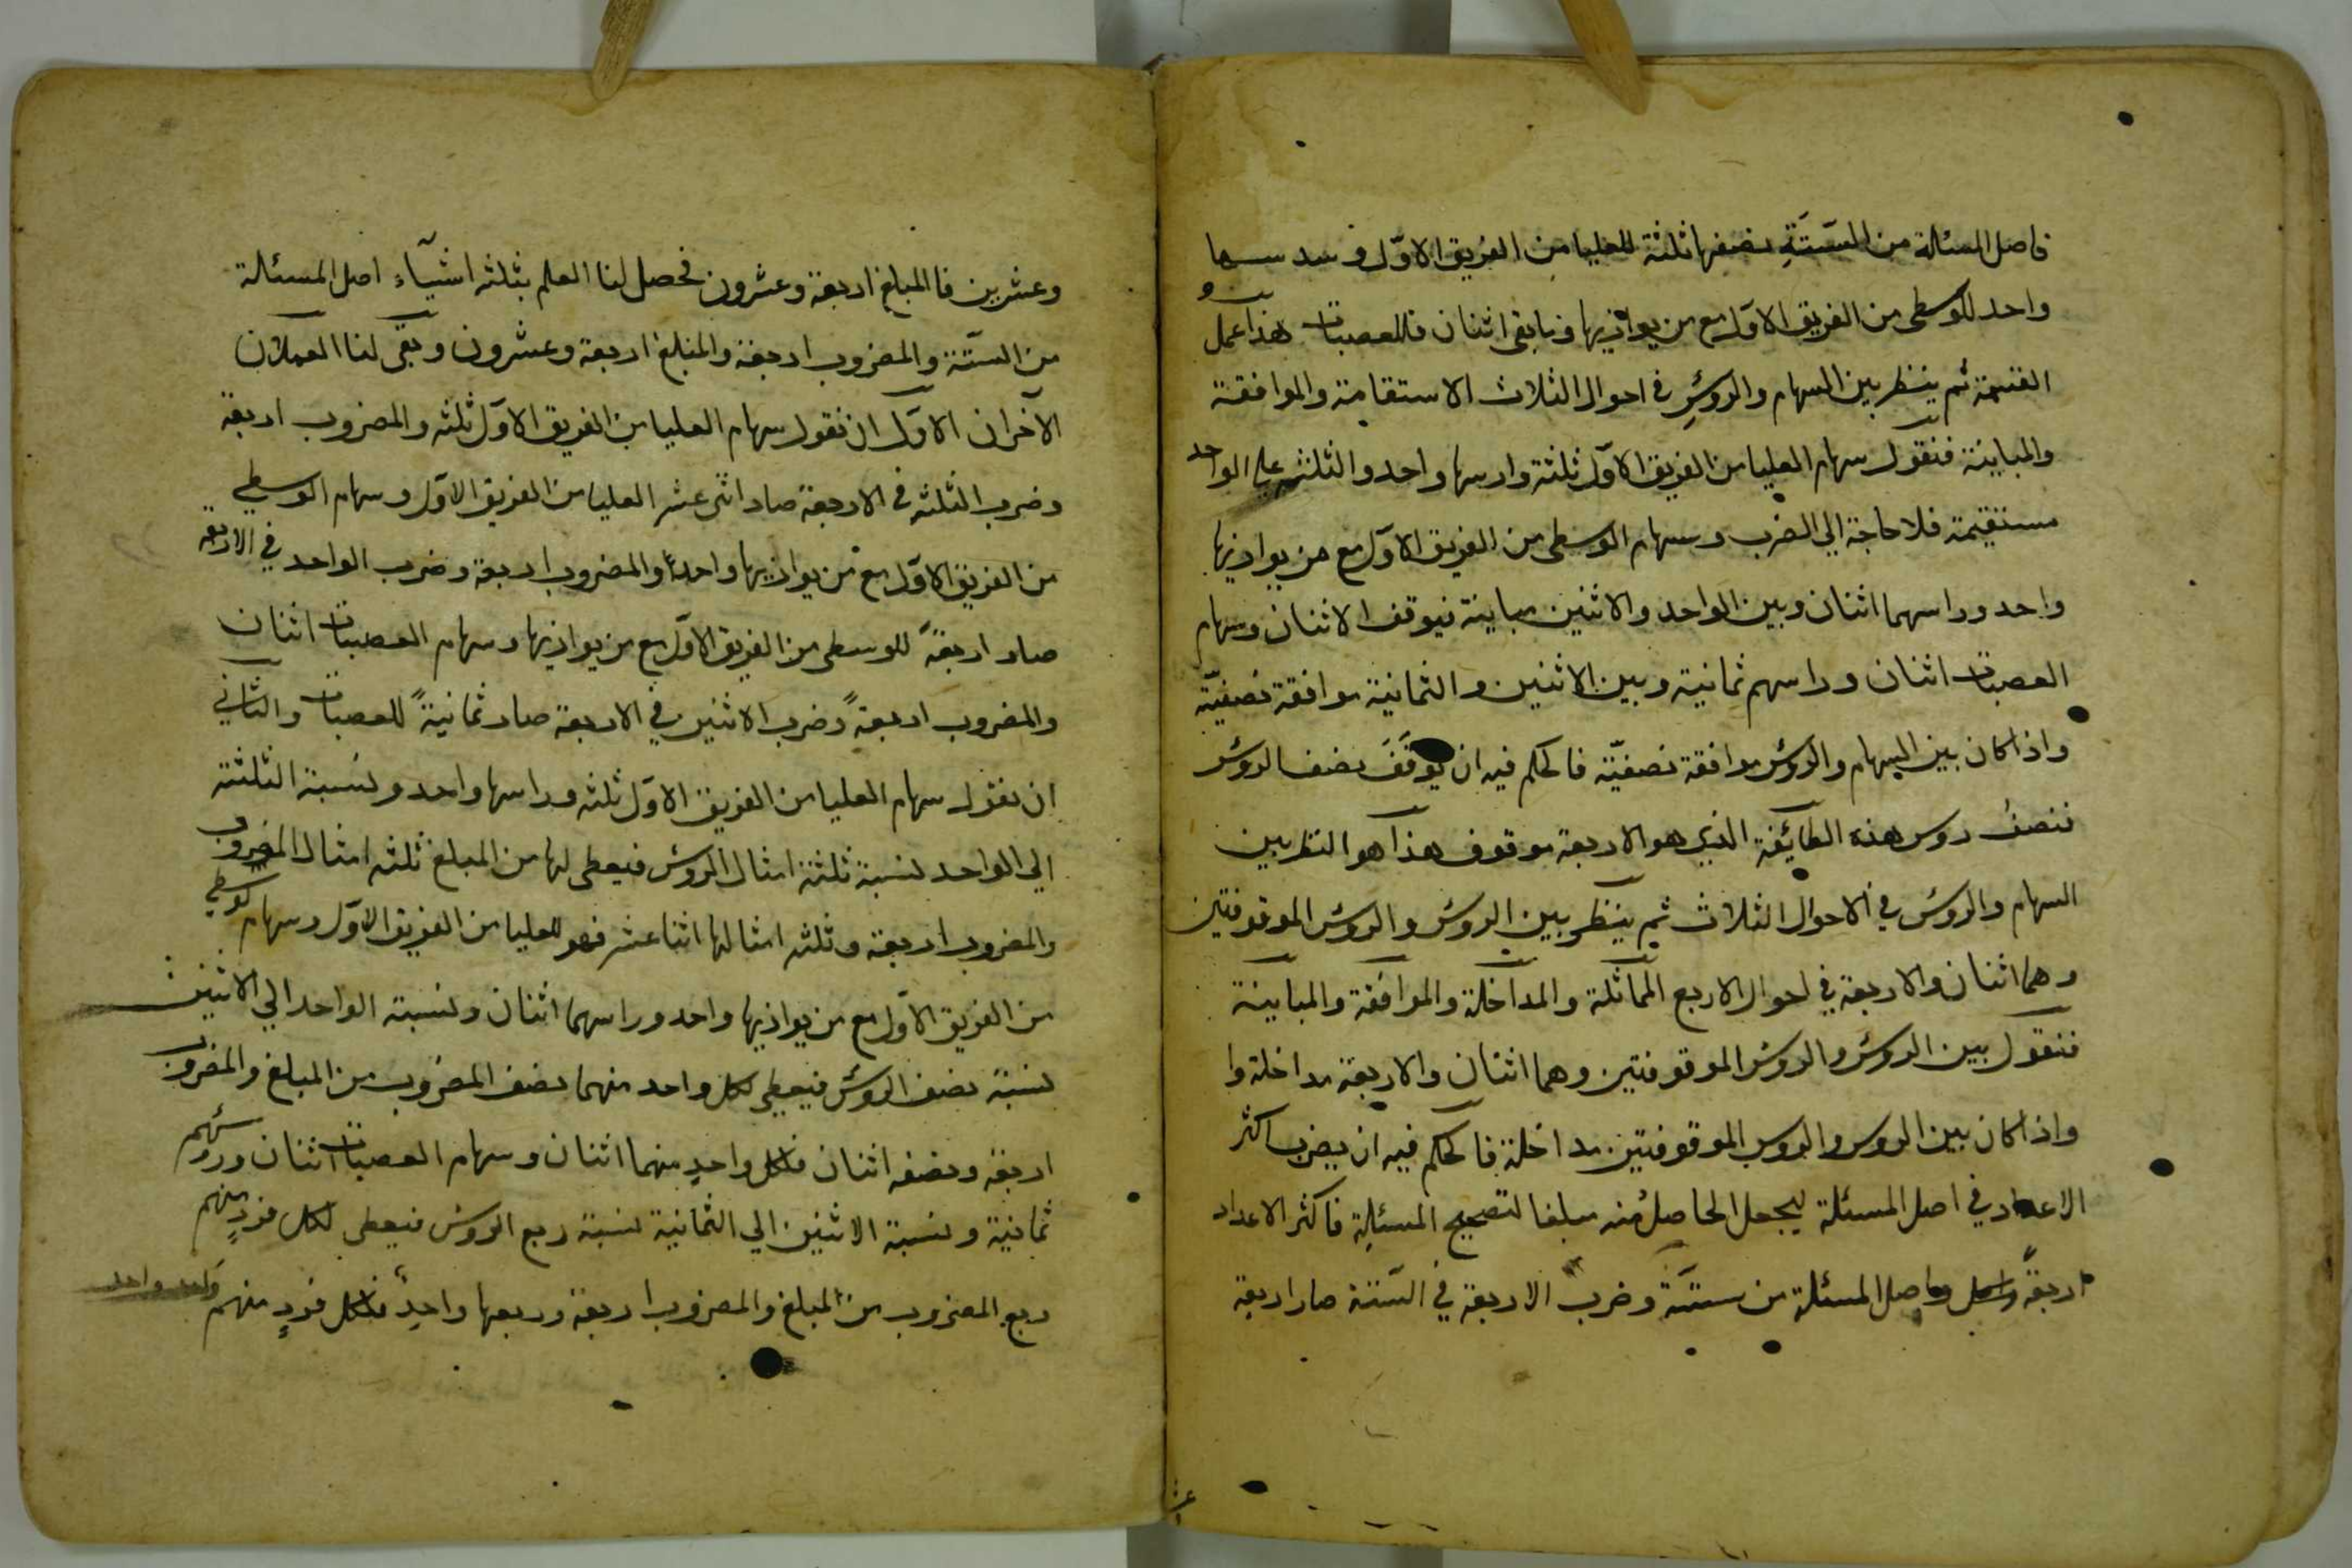 فاصل المسئلة من الستّة نصفها ثلثة للعليا من الفريق الاوّل وسدسها
واحد للوسطى من الفريق الاوّل مع من يوازيها وما بقي اثنان فللعصبات هذا عمل
القسمة ثم ينظر بين السهام والروس في احوال الثلاث الاستقامة والموافقة
والمباينة فنقول سهام العليا من الفريق الاوّل ثلثة وراسها واحد والثلثة على الواحد
مستقيمة فلا حاجة الي الضرب وسهام الوسطى من الفريق الاوّل مع من يوازيها
واحد وراسهما اثنان وبين الواحد والاثنين مباينة فيوقف الاثنان وسهام
العصبات اثنان وراسهم ثمانية وبين الاثنين والثمانية موافقة نصفيّة
واذا كان بين السهام والروس موافقة نصفيّة فالحكم فيه ان يوقَفَ نصف الروس
فنصف روس هذه الطائفة الذي هو الاربعة موقوف هذا هو النظر بين
السهام والروس في الاحوال الثلاث ثم ينظر بين الروس والروس الموقوفتين
وهما اثنان والاربعة في احوال الاربع المماثلة والمداخلة والموافقة والمباينة
فنقول بين الروس والروس الموقوفتين وهما اثنان والاربعة مداخلة وا
واذا كان بين الروس والروس الموقوفتين مداخلة فالحكم فيه ان يضرب اكثر
الاعداد في اصل المسئلة ليجعل الحاصل منه مبلغا لتصحيح المسئلة فاكثر الاعداد
اربعةٌ واصل المسئلة من ستّة وضرب الاربعة في الستّة صار اربعة
وعشرين فالمبلغ اربعة وعشرون فحصل لنا العلم بثلثه اشيآء اصل المسئلة
من الستّة والمضروب اربعة والمبلغ اربعة وعشرون وبقي لنا العملان
الآخران الاوّل ان نقول سهام العليا من الفريق الاوّل ثلثه والمضروب اربعة
وضرب الثلثه في الاربعة صار اثنى عشر العليا من الفريق الاوّل وسهام الوسطي
من الفريق الاوّل مع من يوازيها واحدٌ والمضروب اربعة وضرب الواحد في الاربعة
صار اربعةً للوسطى من الفريق الاوّل مع من يوازيها وسهام العصبات اثنان
والمضروب اربعةً وضرب الاثنين في الاربعة صار ثمانيةً للعصبات والثاني
ان نقول سهام العليا من الفريق الاوّل ثلثه وراسها واحد ونسبة الثلثة
الي الواحد نسبة ثلثة امثال الروس فيعطى لها من المبلغ ثلثه امثال المضروب
والمضروب اربعة وثلثه امثالها اثنا عشر فهو للعليا من الفريق الاوّل وسهام الوسطي
من الفريق الاوّل مع من يوازيها واحد وراسهما اثنان ونسبة الواحد الي الاثنين
نسبة نصف الروس فيعطي لكل واحد منهما نصف المضروب من المبلغ والمضروب
اربعة ونصفه اثنان فلكل واحدٍ منهما اثنان وسهام العصبات اثنان وروسهم
ثمانية ونسبة الاثنين الي الثمانية نسبة ربع الروس فيعطى لكل فردٍ منهم
ربع المضروب من المبلغ والمضروب اربعة وربعها واحدٌ فلكل فردٍ منهم واحد واحد